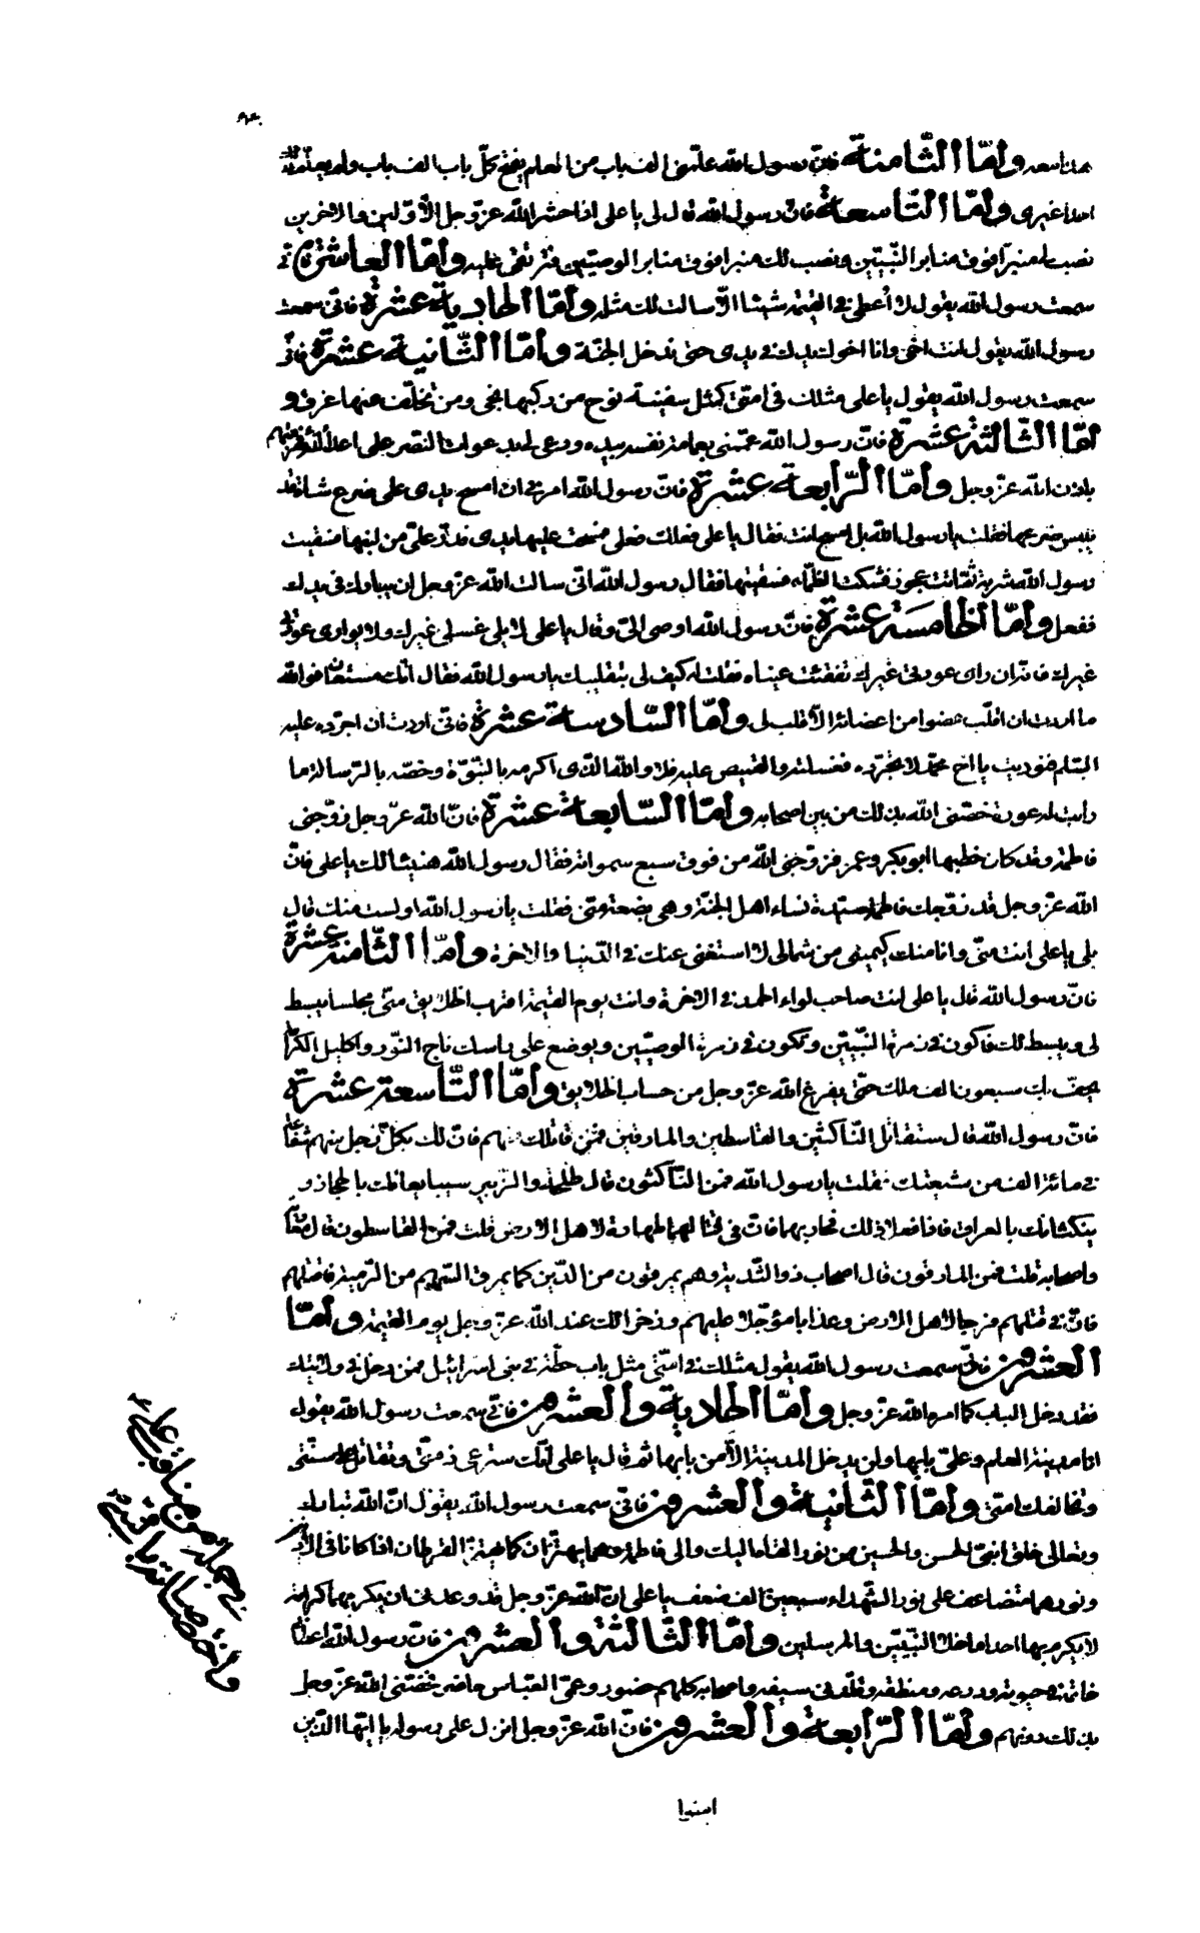 هذا سعد وأمّا الثّامنة فانّ رسول الله علّمنى الف باب من العلم يفتح كلّ باب الف باب ولم يعلّم ذلك
احدا غيرى وأمّا التّاسعة فانّ رسول الله قال لى يا على اذا حشر الله عزّ وجل الاوّلين والاخرين
نصب لى منبرا فوق منابر النّبيّين ونصب لك منبرا فوق منابر الوصيّين فترتقى عليه وأمّا العاشرة فانى
سمعت رسول الله يقول لا أعطى فى القيمة شيئا الّا سالت لك مثله وأمّا الحادية عشرة فانى سمعت
رسول الله يقول انت اخى وانا اخوك يدك فى يدى حتى تدخل الجنّة وأمّا الثّانية عشرة فانّى
سمعت رسول الله يقول يا على مثلك فى امتى كمثل سفينة نوح من ركبها نجى ومن تخلّف عنها غرق و
امّا الثّالثة عشرة فانّ رسول الله عمّمنى بعمامة نفسه بيده ودعى لى بدعوات النصر على اعداء الله فهزمتهم
باذن الله عزّ وجل وأمّا الرّابعة عشرة فانّ رسول الله امرنى ان امسح يدى على ضرع شاة قد
يبس ضرعها فقلت يا رسول الله بل امسح انت فقال يا على فعلك فعلى فمسحت عليها يدى فدرّ علىّ من لبنها فسقيت
رسول الله شربة ثمّ اتت عجوز فشكت الظّماء فسقيتها فقال رسول الله انّى سالت الله عزّ وجل ان يبارك فى يدك
ففعل وأمّا الخامسة عشرة فانّ رسول الله اوصى الىّ وقال يا على لا يلى غسلى غيرك ولا يوارى عورتى
غيرك فانّه ان راى عورتى غيرك تفقئت عيناه فقلت له كيف لى بتقليبك يا رسول الله فقال انّك ستعان فوالله
ما اردت ان اقلّب عضوا من اعضائه الّا قلب لى وأمّا السّادسة عشرة فانّى اردت ان اجرّده عليه
السّلم فنوديت يا اخ محمّد لا تجرّده فغسلته والقميص عليه فلا والله الّذى اكرمه بالنّبوّة وخصّه بالرّسالة ما
رايت له عورة خصّنى الله بذلك من بين اصحابه وأمّا السّابعة عشرة فانّ الله عزّ وجل زوّجنى
فاطمة وقد كان خطبها ابو بكر وعمر فزوّجنى الله من فوق سبع سمواته فقال رسول الله هنيئا لك يا على فانّ
الله عزّ وجل قد زوّجك فاطمة سيّدة نساء اهل الجنّة وهى بضعة منّى فقلت يا رسول الله اولست منك قال
بلى يا على انت منّى وانا منك كيمينى من شمالى لا استغنى عنك فى الدّنيا والاخرة وأمّا الثّامنة عشرة
فانّ رسول الله قال يا على انت صاحب لواء الحمد فى الاخرة وانت يوم القيمة اقرب الخلايق منّى مجلسا يبسط
لى ويبسط لك فاكون فى زمرة النّبيّين وتكون فى زمرة الوصيّين ويوضع على راسك تاج النّور واكليل الكرامة
يحفّ بك سبعون الف ملك حتّى يفرغ الله عزّ وجل من حساب الخلايق وأمّا التّاسعة عشرة
فانّ رسول الله قال ستقاتل النّاكثين والقاسطين والمارقين فمن قاتلك منهم فانّ لك بكلّ رجل منهم شفاعة
فى مائة الف من شيعتك فقلت يا رسول الله فمن النّاكثون قال طلحة والزّبير سيبايعانك بالحجاز و
ينكثانك بالعراق فاذا فعلا ذلك فحاربهما فانّ فى قتالهما طهارة لاهل الارض قلت فمن القاسطون قال معاوية
واصحابه قلت فمن المارقون قال اصحاب ذو الثّدية وهم يمرقون من الدّين كما يمرق السّهم من الرّمية فاقتلهم
فانّ فى قتلهم فرجا لاهل الارض وعذابا مؤجّلا عليهم وذخرا لك عند الله عزّ وجل يوم القيمة وأمّا
العشرون فانّى سمعت رسول الله يقول مثلك فى امّتى مثل باب حطّة فى بنى اسرائيل فمن دخل فى ولايتك
فقد دخل الباب كما امره الله عزّ وجل وأمّا الحادية والعشرون فانّى سمعت رسول الله يقول
انا مدينة العلم وعلىّ بابها ولن يدخل المدينة الّا من بابها ثم قال يا على انّك سترعى ذمّتى وتقاتل على سنّتى
وتخالفك امتى وأمّا الثّانية والعشرون فانّى سمعت رسول الله يقول انّ الله تبارك
وتعالى خلق ابنىّ الحسن والحسين من نور القاه اليك والى فاطمة وهما يهتزّان كما يهتزّ القرطان اذا كانا فى الاذنين
ونورهما متضاعف على نور الشّهداء سبعين الف ضعف يا على انّ الله عزّ وجل قد وعدنى ان يكرمهما كرامة
لا يكرم بها احدا ما خلا النّبيّين والمرسلين وأمّا الثّالثة والعشرون فانّ رسول الله اعطانى
خاتمه فى حيوته ودرعه ومنطقه وقلّدنى سيفه واصحابه كلهم حضور وعمّى العبّاس حاضر فخصّنى الله عزّ وجل
بذلك دونهم وأمّا الرّابعة والعشرون فانّ الله عزّ وجل انزل على رسوله يا ايّها الّذين
امنوا
فى جملة من مناقب على ع
واختصاصاته بامور